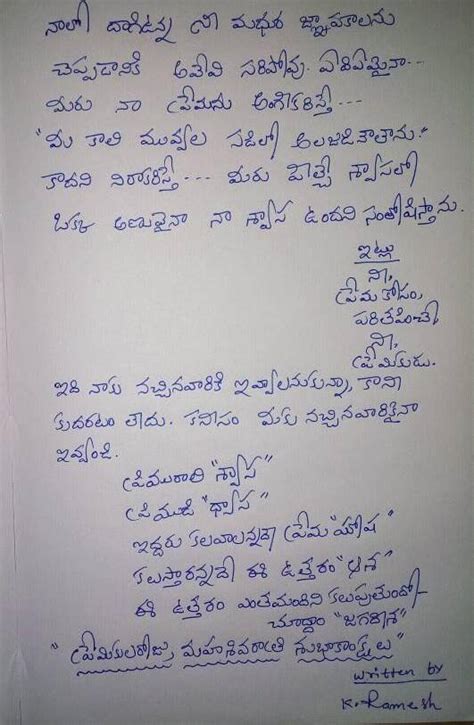 నాలో దాగిఉన్న నీ మధుర జ్ఞాపకాలను
చెప్పడానికి అవేవి సరిపోవు. ఏదిఏమైనా...
మీరు నా ప్రేమను అంగికరిస్తే...
"మీ కాలి మువ్వల సడిలో అలజడినౌతాను."
కాదని నిరాకరిస్తే... మీరు పీల్చే శ్వాసలో
ఒక్క అణువైనా నా శ్వాస ఉందని సంతోషిస్తాను.
ఇట్లు
నీ,
ప్రేమ కోసం,
పరితపించే
నీ,
ప్రేమికుడు.
ఇది నాకు నచ్చినవారికే ఇవ్వాలనుకున్నా, కాని
కుదరటం లేదు. కనీసం మీకు నచ్చినవారికైనా
ఇవ్వండి.
ప్రేమురాలి "శ్వాస"
ప్రేముడి "ధ్యాస"
ఇద్దరు కలవాలన్నదా ప్రేమ "ఘోష"
కలుస్తారన్నదే ఈ ఉత్తరం "ఆశ"
ఈ ఉత్తరం ఎంతమందిని కలుపుతుందో
చూద్దాం "జగదీశ"
"ప్రేమికులరోజు, మహాశివరాత్రి శుభాకాంక్షలు"
written by
K. Ramesh